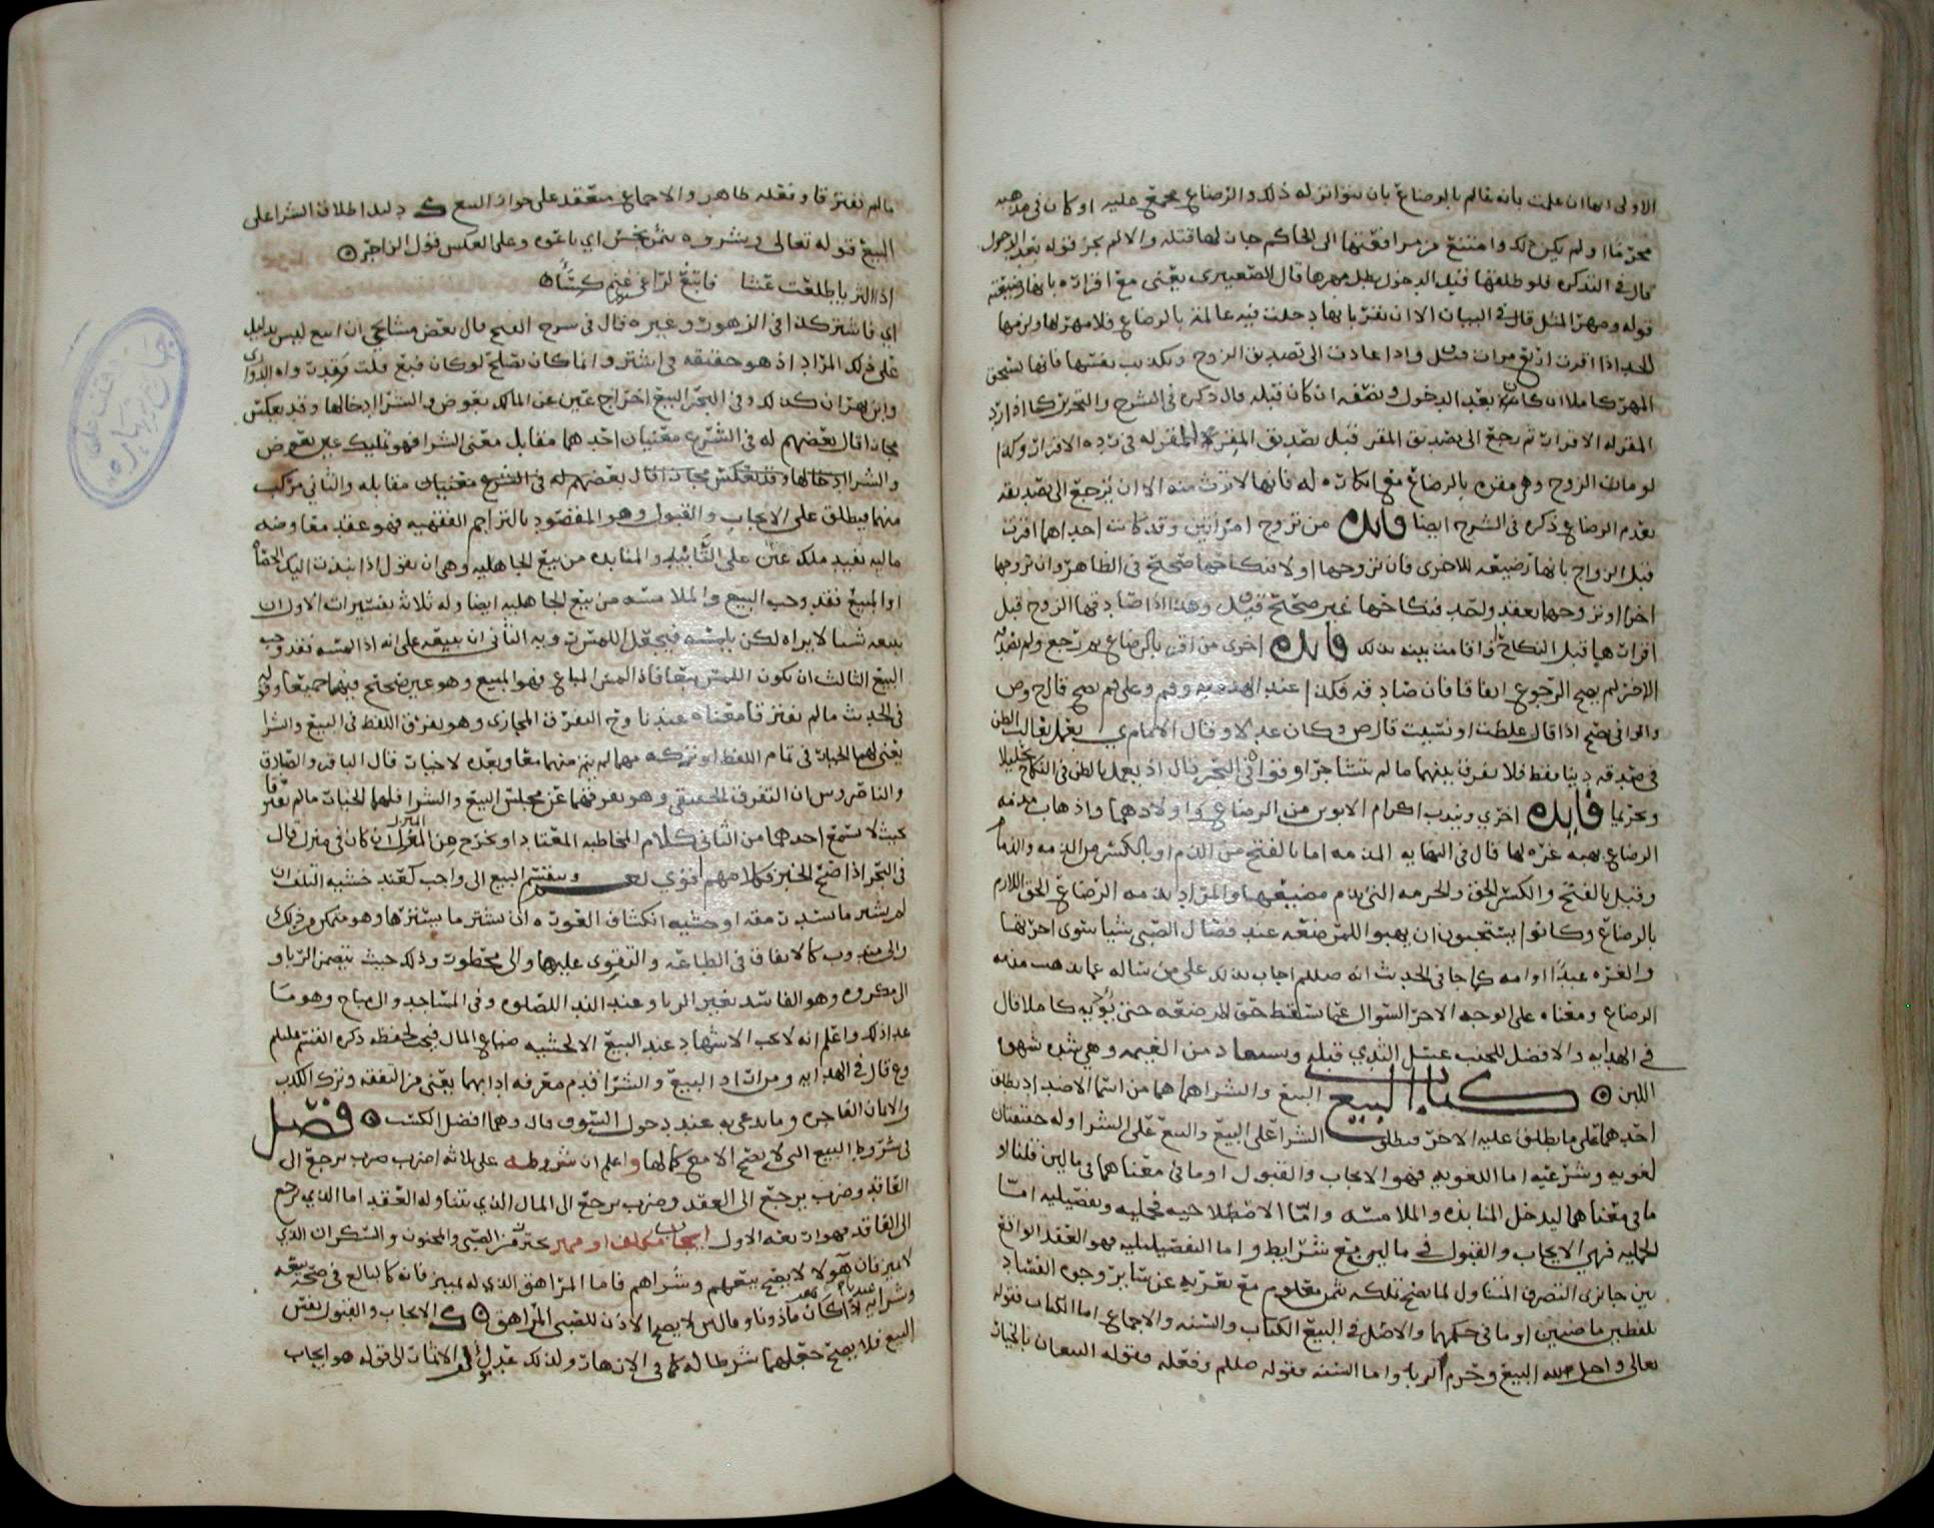 الاولى اما ان علمت بانه عالم بالرضاع بان يتواتر له ذلك والرضاع مجمع عليه او كان في مذهبه
محرما او لم يكن ذلك وامتنع من مرافقتها الى الحاكم جاز لها قتله والا لم يجز قوله بعد الدخول
قال في التذكره فلو طلقها قبل الدخول بطل مهرها قال الصعيتري يعني مع اقراره بانها رضيعته
قوله ومهر المثل قال في البيان الا ان تقر بانها دخلت فيه عالمة بالرضاع فلا مهر لها ولزمها
الحد اذا اقرت اربع مرات قيل واذا عادت الى تصديق الزوج وتكذيب نفسها فانها تستحق
المهر كاملا ان كان بعد الدخول ونصفه ان كان قبله قال ذكره في الشرح والتحرير كما اذا رد
المقر له الاقرار ثم رجع الى تصديق المقر قبل تصديق المقر للمقر له في رده الاقرار وكذا
لو مات الزوج وهي مقره بالرضاع مع انكاره له فانها لا ترث منه الا ان ترجع الى تصديقه
بعدم الرضاع ذكره في الشرح ايضا فايده من تزوج امرأتين وقد كانت احداهما اقرت
قبل الزواج بانها رضيعه للاخرى فان تزوجها اولا فنكاحها صحيح في الظاهر وان تزوجها
اخرا او تزوجهما بعقد واحد فنكاحها غير صحيح قيل وهذا اذا صادقها الزوج قبل
اقرارها قبل النكاح او اقامت بينه بذلك فايده اخرى من اقر بالرضاع ثم رجع ولم يصدقه
الاخر لم يصح الرجوع اتفاقا فان صادقه فكذا عند الهدويه و
والوافي يصح اذا قال غلطت او نسيت قال ص وكان عدلا وقال الامام ي يعمل بغالب الظن
في صدقه دينا فقط فلا يفرق بينهما ما لم يتشاجرا وقواه في البحر قال اذ يعمل بالظن في النكاح تحليلا
وتحريما فايده اخرى ويندب اكرام الابوين من الرضاع واولادهما واذهاب مذمه
الرضاع بهبه غره لها قال في النهايه المذمه اما بالفتح من الذم او بالكسر من الذمه والذمام
وقيل بالفتح والكسر الحق والحرمه التي يذم مضيعها والمراد بذمه الرضاع الحق اللازم
بالرضاع وكانوا يستحبون ان يهبوا للمرضعه عند فصال الصبي شيئا سوى اجرتها
والغره عبدا او امه كما جا في الحديث انه صلعم اجاب بذلك على من ساله عما يذهب مذمه
الرضاع ومعناه على الوجه الاخر السوال عما يسقط حق المرضعه حتى يؤديه كاملا قال
في الهدايه والافضل للجنب غسل الثدي قبله ويستعاذ من الغيمه وهي شده شهوه
اللبن كتاب البيع البيع والشرا هما من اسما الاضداد يطلق
احدهما على ما يطلق عليه الاخر فيطلق الشرا على البيع والبيع على الشرا وله حقيقتان
لغويه وشرعيه اما اللغويه فهو الايجاب والقبول او ما في معناهما في مالين قلنا او
ما في معناهما ليدخل المنابذه والملامسه واما الاصطلاحيه فجمليه وتفصيليه اما
الجمليه فهي الايجاب والقبول في مالين مع شرايط واما التفصيليه فهو العقد الواقع
بين جايزي التصرف المتناول لما يصح تملكه بثمن معلوم مع تعريه عن ساير وجوه الفساد
بلفظين ماضيين او ما في حكمهما والاصل في البيع الكتاب والسنه والاجماع اما الكتاب فقوله
تعالى واحل الله البيع وحرم الربا واما السنه فقوله صلعم وفعله فقوله البيعان بالخيار
ما لم يفترقا وفعله ظاهر والاجماع منعقد على جواز البيع ك دليل اطلاق الشرا على
البيع قوله تعالى وشروه بثمن بخس اي باعوه وعلى العكس قول الراجز
اذا الثريا طلعت عشا فابتغ لراعي غنم كسا
اي فاشتر كذا في الزهور وغيره قال في شرح الفتح قال بعض مشائخي ان ابيع ليس بدليل
على ذلك المراد اذ هو حقيقه في اشتر وانما كان يصلح لو كان فبع قلت
وابن بهران كذلك وفي البحر البيع اخراج عين عن المالك بعوض والشرا ادخالها وقد يعكس
مجازا قال بعضهم له في الشرع معنيان احدهما مقابل معنى الشرا فهو تمليك عين بعوض
والشرا ادخالها وقد يعكس مجازا قال بعضهم له في الشرع معنيان مقابله والثاني مركب
منهما فيطلق على الايجاب والقبول وهو المقصود بالتراجم الفقهيه فهو عقد معاوضه
ماليه يفيد ملك عين على التأبيد والمنابذه من بيع الجاهليه وهي ان يقول اذا نبذت اليك الحصاه
او المبيع فقد وجب البيع والملامسه من بيع الجاهليه ايضا وله ثلاثه تفسيرات الاول ان
يبيعه شيا لا يراه لكن يلمسه فيجعل اللمس رؤيه الثاني ان يبيعه على انه اذا لمسه فقد وجب
البيع الثالث ان يكون اللمس بيعا فاذا لمس المباع فهو المبيع وهو غير صحيح فيهما جميعا وقوله
في الحديث ما لم يفترقا معناه عندنا وح التفرق المجازي وهو تفرق اللفظ في البيع والشرا
يعني لهما الخيار في تمام اللفظ او تركه مهما لم يتم منهما معا وبعده لا خيار قال الباقر والصادق
والناصر وش ان التفرق الحقيقي وهو تفرقهما عن مجلس البيع والشرا فلهما الخيار ما لم يفترقا
بحيث لا يسمع احدهما من الثاني كلام المخاطبه المعتاد او يخرج من المنزل ان كان في منزل قال
في البحر اذا صح الخبر فكلامهم اقوى وينقسم البيع الى واجب كعند خشيه التلف ان
لم يشتر ما يسد رمقه او خشيه انكشاف العوره ان لم يشتر ما يسترها وهو متمكن من ذلك
والى مندوب كالانفاق في الطاعه والتقوي عليها والى محظور وذلك حيث يتضمن الربا و
الى مكروه وهو الفاسد بغير الربا وعند الندا للصلوه وفي المساجد والى مباح وهو ما
عدا ذلك واعلم انه لا يجب الاشهاد عند البيع الا لخشيه ضياع المال فيجب لحفظه ذكره القسم عليلم
وع قال في الهدايه ومن اراد البيع والشرا قدم معرفه ادابهما يعني من التفقه وترك الكذب
والايمان الفاجره وما يدعى به عند دخول السوق قال وهما افضل الكسب فصل
في شروط البيع التي لا يصح الا مع كمالها واعلم ان شروطه على ثلاثه اضرب ضرب يرجع الى
العاقد وضرب يرجع الى العقد وضرب يرجع الى المال الذي يتناوله العقد اما الذي يرجع
الى العاقد فهو اربعه الاول ايجاب مكلف او مميز يحترز من الصبي والمجنون والسكران الذي
لا يميز فان هؤلا لا يصح بيعهم وشراهم فاما المراهق الذي له تمييز فانه كالبالغ في صحه بيعه
وشرايه اذا كان ماذونا وقال ش لا يصح الاذن للصبي المراهق ك الايجاب والقبول نفس
البيع فلا يصح جعلهما شرطا له كما في الازهار ولذلك عدل في الاثمار الى قوله هو ايجاب